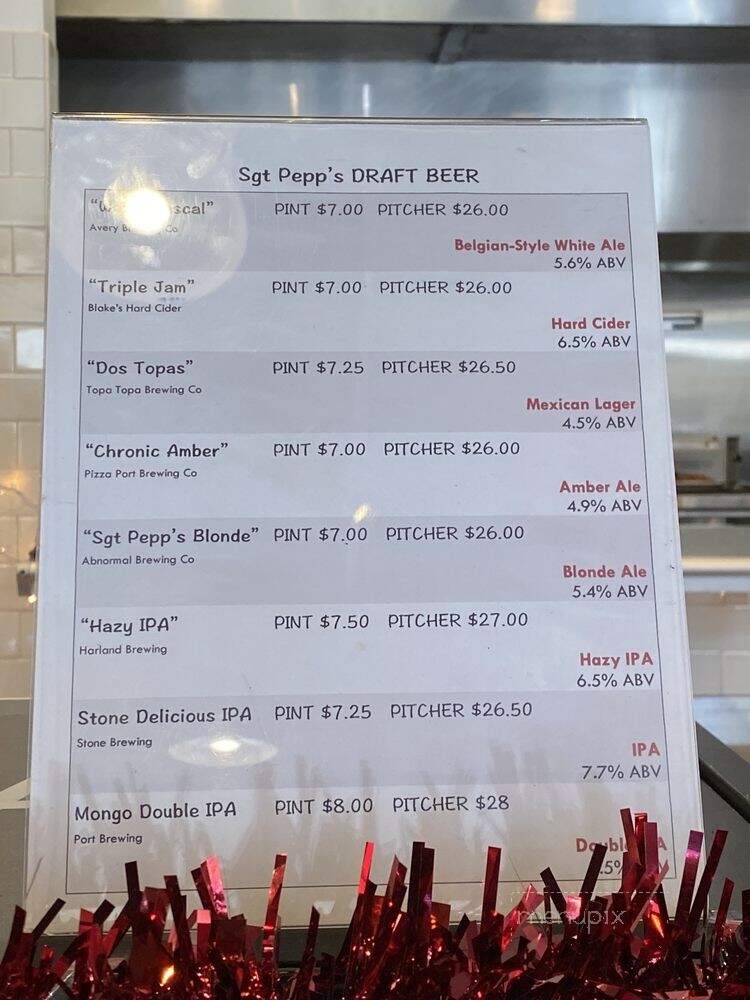 Sgt Pepp's DRAFT BEER
PINT $7.00 PITCHER $26.00
Avery Co
Belgian-Style White Ale
5.6% ABV
"Triple Jam" PINT $7.00 PITCHER $26.00
Blake's Hard Cider
Hard Cider
6.5% ABV
"Dos Topas" PINT $7.25 PITCHER $26.50
Topa Topa Brewing Co
Mexican Lager
4.5% ABV
"Chronic Amber" PINT $7.00 PITCHER $26.00
Pizza Port Brewing Co
Amber Ale
4.9% ABV
"Sgt Pepp's Blonde" PINT $7.00 PITCHER $26.00
Abnormal Brewing Co
Blonde Ale
5.4% ABV
"Hazy IPA" PINT $7.50 PITCHER $27.00
Harland Brewing
Hazy IPA
6.5% ABV
Stone Delicious IPA PINT $7.25 PITCHER $26.50
Stone Brewing
IPA
7.7% ABV
Mongo Double IPA PINT $8.00 PITCHER $28
Port Brewing
Double
menupix